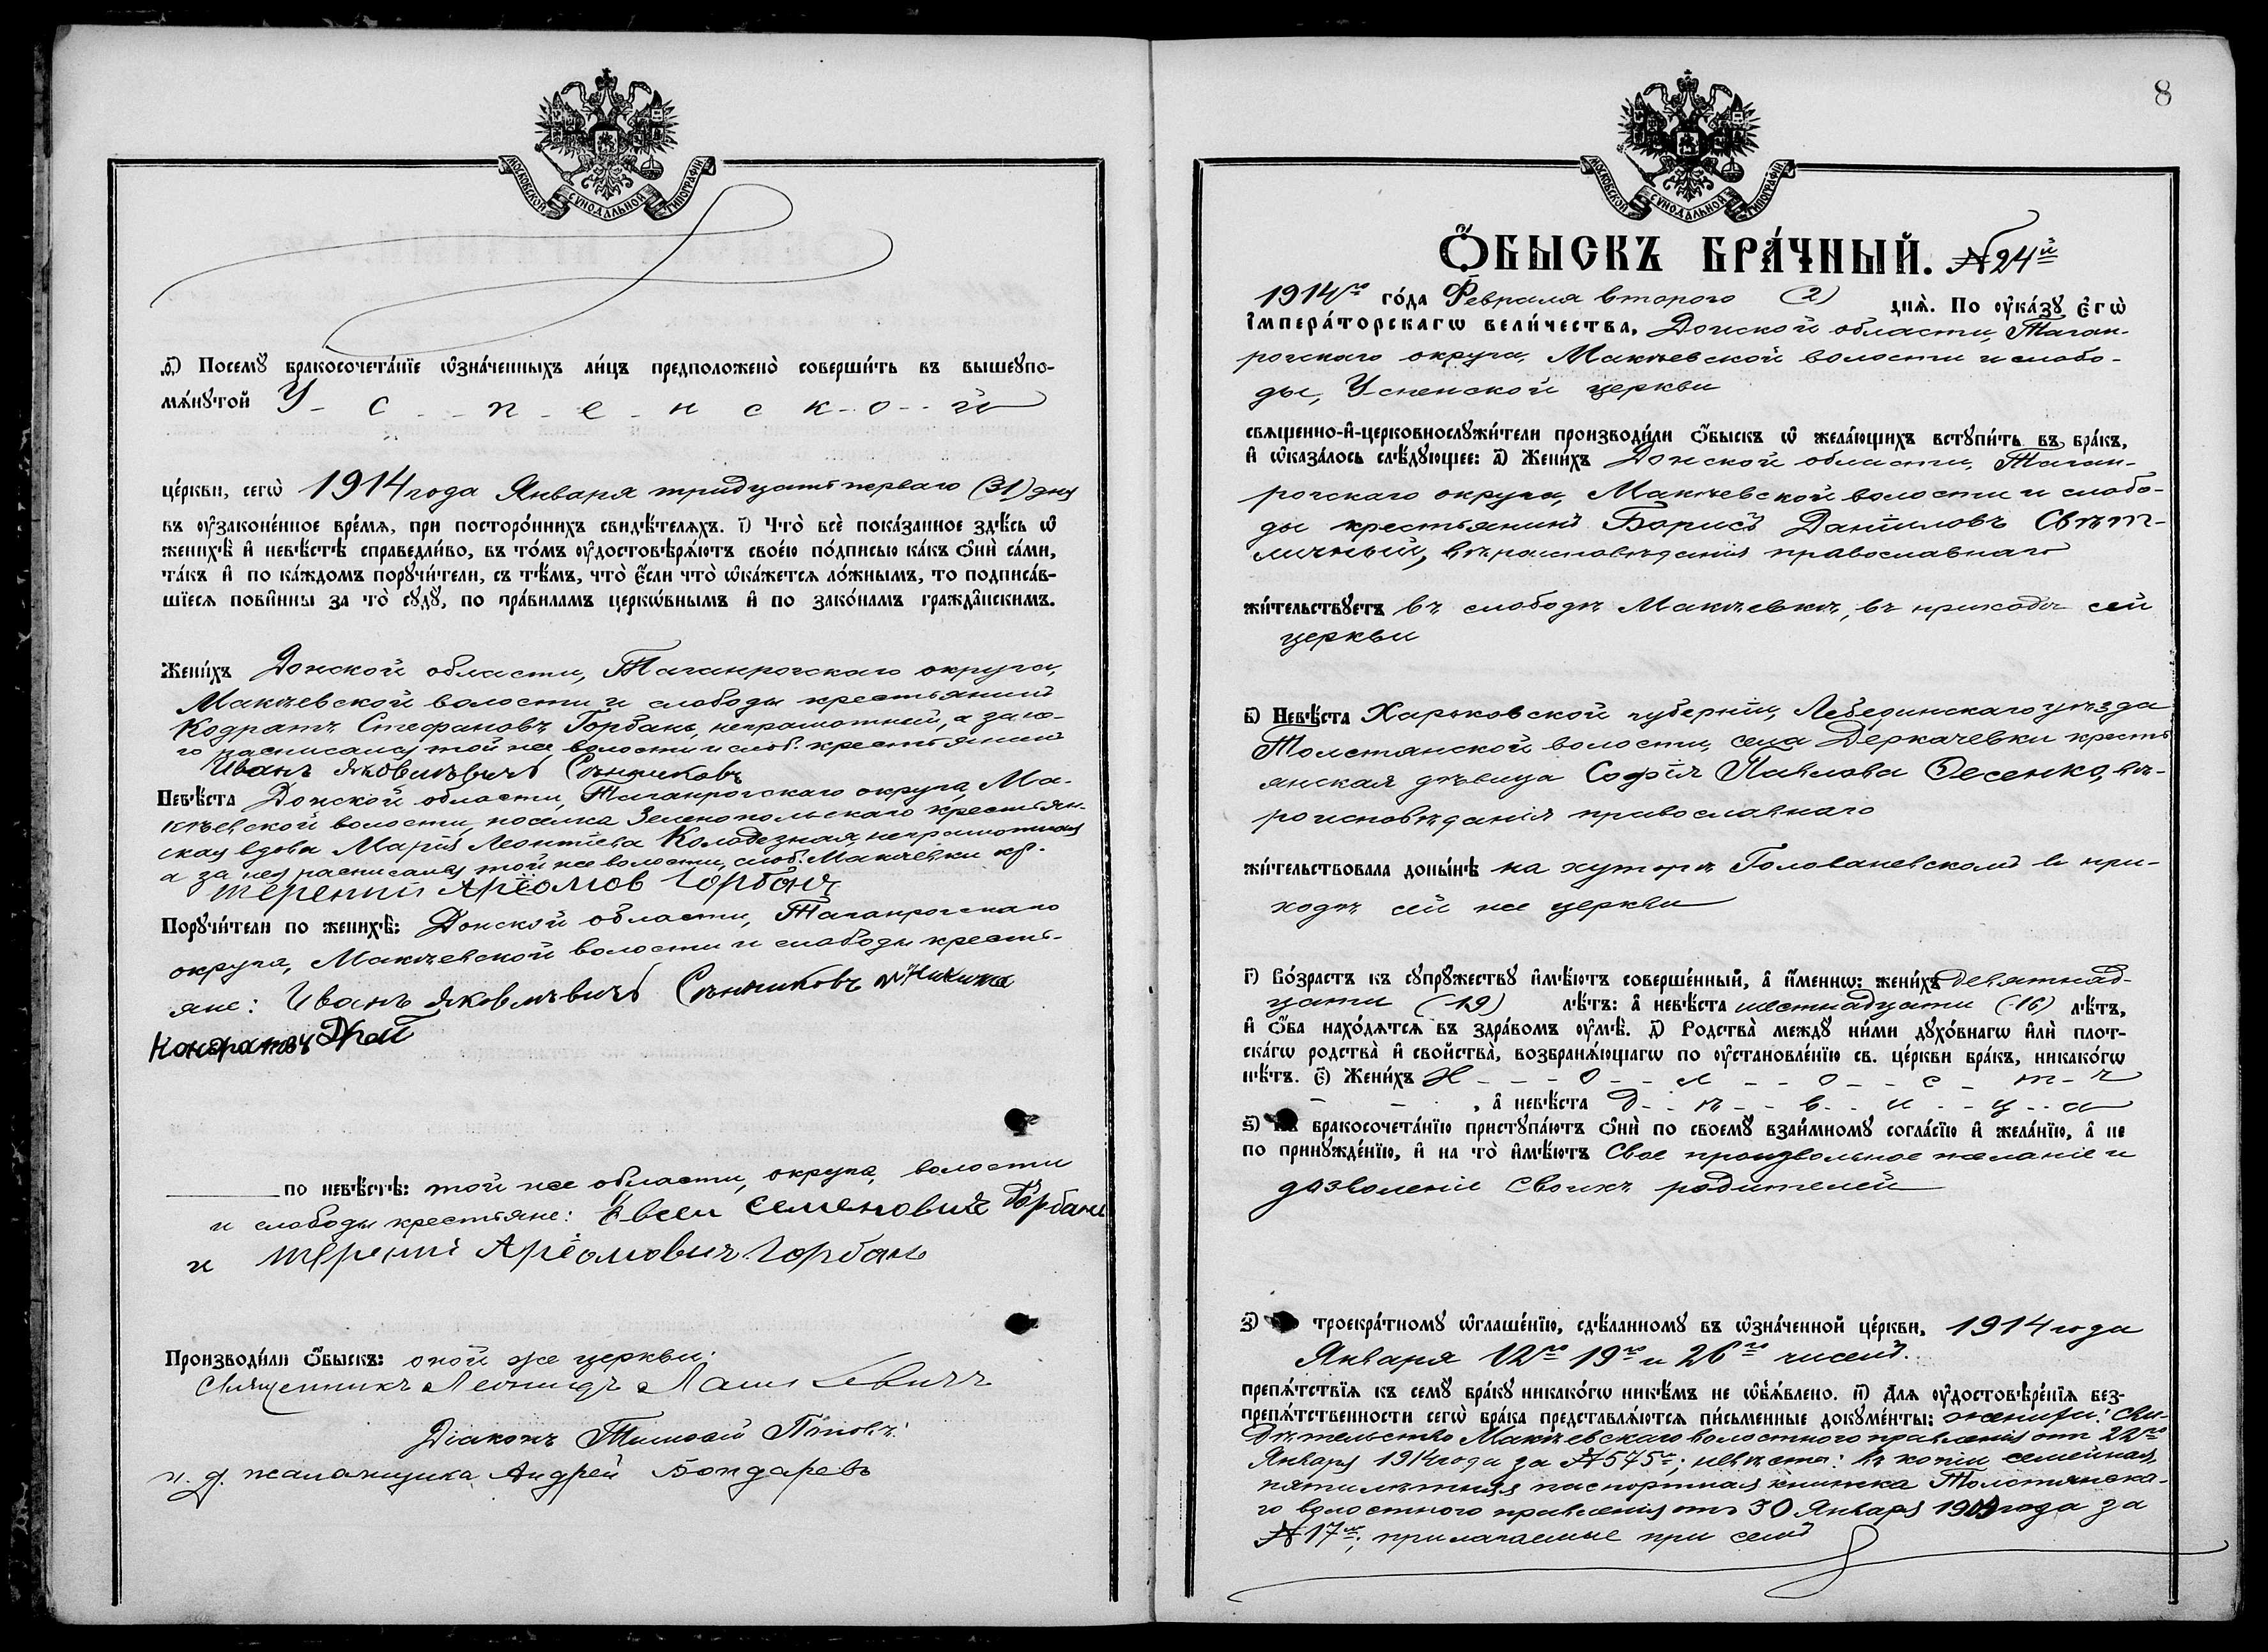 МОСКОВСКОЙ СѴНОДАЛЬНОЙ ТИПОГРАФІИ
ѳ҃) Посемꙋ бракосочета́нїе ѡ҆зна́ченныхъ ли́цъ предположено̀ соверши́ть въ вышеꙋпо-
мѧ́нꙋтой У с п е н с к о й
це́ркви, сегѡ̀ 1914 года Января тридцать перваго (31) дня
въ ᲂу҆законе́нное вре́мѧ, при посторо́ннихъ свидѣ́телѧхъ. і҃) Что̀ всѐ пока́занное здѣ́сь ѡ҆
женихѣ̀ и҆ невѣ́стѣ справедли́во, въ то́мъ ᲂу҆достовѣрѧ́ютъ свое́ю по́дписью ка́къ ѻ҆нѝ са́ми,
та́къ и҆ по ка́ждомъ порꙋчи́тели, съ тѣ́мъ, что̀ є҆́сли что̀ ѡ҆ка́жетсѧ ло́жнымъ, то подписа́в-
шїесѧ пови́нны за то̀ сꙋдꙋ̀, по пра́виламъ церкѡ́внымъ и҆ по зако́намъ гражда̑нскимъ.
Жени́хъ Донской области, Таганрогскаго округа,
Макѣевской волости и слободы крестьянинъ
Кодратъ Стефановъ Горбань, неграмотный, а за не-
го расписался той же волости и слоб. крестьянинъ
Иванъ Яковлѣвичъ Сѣнниковъ
Невѣ́ста Донской области, Таганрогскаго округа, Ма-
кѣевской волости, поселка Зеленопольскаго крестьян-
ская вдова Марія Леонтіева Колодезная, неграмотная
а за нея расписался той же волости, слоб. Макѣевки кр.
Терентій Артіомов Горбань
Порꙋчи́тели по женихѣ̀: Донской области, Таганрогскаго
округа, Макѣевской волости и слободы крестья-
яне: Иванъ Яковлѣвичъ Сѣнниковъ и Никита
по невѣ́стѣ: той же области, округа, волости
и слободы крестьяне: Евсей Семеновичъ Горбань
и Терентій Артіомовичъ Горбань
Производи́ли ѻ҆́быскъ: оной же церкви:
Священникъ Леонидъ
Діаконъ Тимофей Поповъ
и. д. псаломщика Андрей Бондаревъ
8
МОСКОВСКОЙ СѴНОДАЛЬНОЙ ТИПОГРАФІИ
Ѻ҆́БЫСКЪ БРА́ЧНЫЙ. №24й
1914го го́да Февраля второго (2) днѧ̀. По ᲂу҆ка́зꙋ Є҆гѡ̀
І҆мпера́торскагѡ вели́чества, Донской области, Таган-
рогскаго округа, Макѣевской волости и слобо-
ды, Успенской церкви
свѧщенно-и҆-церковнослꙋжи́тели производи́ли ѻ҆́быскъ ѡ҆ жела́ющихъ встꙋпи́ть въ бра́къ,
и҆ ѡ҆каза́лось слѣ́дꙋющее: а҃) Жени́хъ Донской области, Таган-
рогскаго округа, Макѣевской волости и слобо-
ды крестьянинъ Борисъ Даниловъ Свѣт-
личный, вѣроисповѣданія православнаго
жи́тельствꙋетъ въ слободѣ Макѣевкѣ, въ приходѣ сей
церкви
в҃) Невѣ́ста Харьковской губерніи, Лебединскаго уѣзда
Толстянской волости, села Деркачевки кресть
янская дѣвица Софія Павлова Десенко, вѣ-
роисповѣданія православнаго
жи́тельствовала доны́нѣ на хуторѣ Голованевскомъ въ при-
ходѣ сей же церкви
г҃) Во́зрастъ къ сꙋпрꙋ́жествꙋ и҆мѣ́ютъ соверше́нный, а҆ и҆́меннѡ: жени́хъ девятнад-
цати (19) лѣ́тъ: а҆ невѣ́ста шестнадцати (16) лѣ́тъ,
и҆ ѻ҆́ба нахо́дѧтсѧ въ здра́вомъ ᲂу҆мѣ̀. д҃) Родства̀ междꙋ ни́ми дꙋхо́внагѡ и҆лѝ плот-
ска́гѡ родства̀ и҆ свойства̀, возбранѧ́ющагѡ по ᲂу҆становле́нїю св. це́ркви бра́къ, никако́гѡ
нѣ́тъ. є҃) Жени́хъ Х о л о с т ъ
, а҆ невѣ́ста д ѣ в и ц а
ѕ҃) бракосочета́нїю пристꙋпа́ютъ ѻ҆нѝ по своемꙋ̀ взаи́мномꙋ согла́сїю и҆ жела́нїю, а҆ не
по принꙋжде́нїю, и҆ на то̀ и҆мѣ́ютъ свое произвольное желаніе и
дозволеніе своихъ родителей
з҃) троекра́тномꙋ ѡ҆глаше́нїю, сдѣ́ланномꙋ въ ѡ҆зна́ченной це́ркви, 1914 года
Января 12го 19го и 26го чиселъ.
препѧ́тствїѧ къ семꙋ̀ бра́кꙋ никако́гѡ никѣ́мъ не ѡ҆б̾ѧ́влено. и҃) Длѧ ᲂу҆достовѣре́нїѧ без-
препѧ́тственности сегѡ̀ бра́ка представлѧ́ютсѧ пи́сьменные докꙋме́нты: жениха: сви-
дѣтельство Макѣевскаго волостного правленія отъ 22го
Января 1914 года за №575м; невѣста: въ копіи семейная
пятилѣтняя паспортная книжка Толстянска-
го волостного правленія отъ 30 Января года за
№17м; прилагаемые при семъ